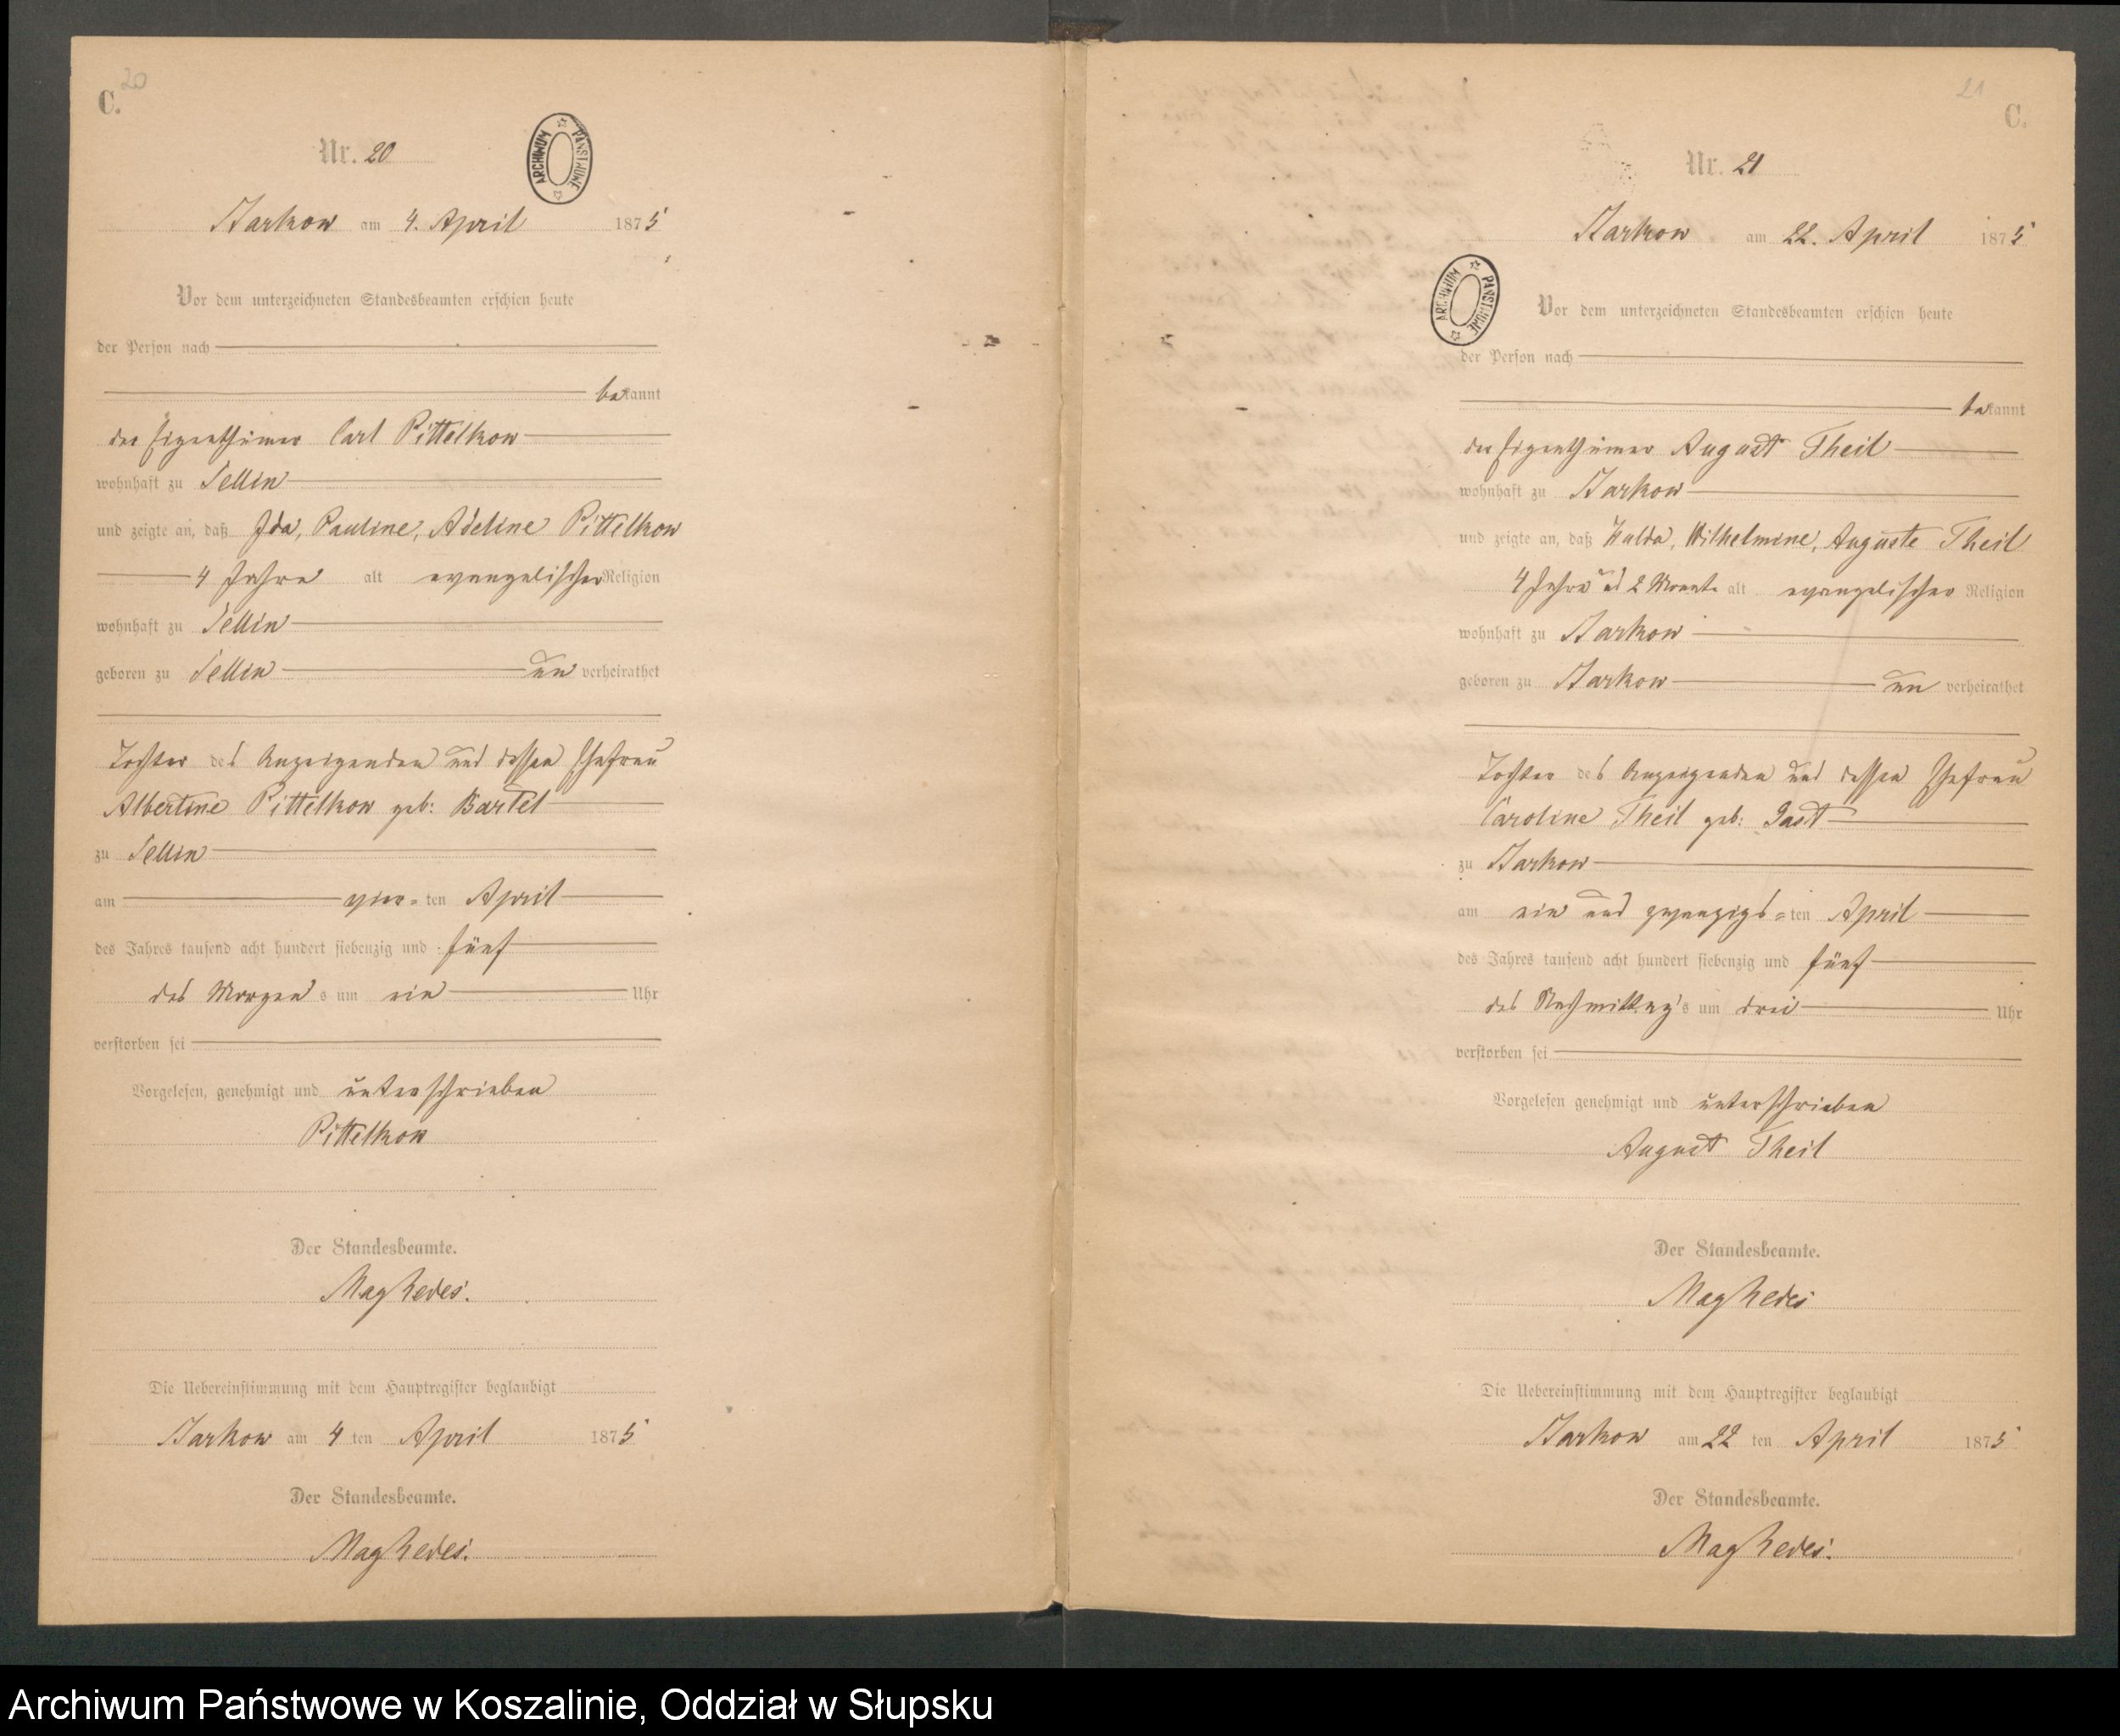 20
C.
Nr. 20
ARCHIWUM PAŃSTWOWE
Starkow am 4. April 1875
Vor dem unterzeichneten Standesbeamten erschien heute
der Person nach
bekannt
der Eigenthümer Carl Pittelkow
wohnhaft zu Sellin
und zeigte an, daß Ida, Pauline, Adeline Pittelkow
4 Jahre alt evangelischer Religion
wohnhaft zu Sellin
geboren zu Sellin un verheirathet
Tochter des Anzeigenden und dessen Ehefrau
Albertine Pittelkow geb: Bartel
zu Sellin
am vier=ten April
des Jahres tausend acht hundert siebenzig und fünf
des Morgens um ein Uhr
verstorben sei
Vorgelesen, genehmigt und unterschrieben
Pittelkow
Der Standesbeamte.
Die Uebereinstimmung mit dem Hauptregister beglaubigt
Starkow am 4 ten April 1875
Der Standesbeamte.
21
C.
Nr. 21
Starkow am 22. April 1875
ARCHIWUM PAŃSTWOWE
Vor dem unterzeichneten Standesbeamten erschien heute
der Person nach
bekannt
der Eigenthümer August Theil
wohnhaft zu Starkow
und zeigte an, daß Hulda, Wilhelmine, Auguste Theil
4 Jahre und 2 Monate alt evangelischer Religion
wohnhaft zu Starkow
geboren zu Starkow un verheirathet
Tochter des Anzeigenden und dessen Ehefrau
Caroline Theil geb: Gast
zu Starkow
am ein und zwanzigs=ten April
des Jahres tausend acht hundert siebenzig und fünf
des Nachmittag's um drei Uhr
verstorben sei
Vorgelesen genehmigt und unterschrieben
August Theil
Der Standesbeamte.
Die Uebereinstimmung mit dem Hauptregister beglaubigt
Starkow am 22 ten April 1875
Der Standesbeamte.
Archiwum Państwowe w Koszalinie, Oddział w Słupsku